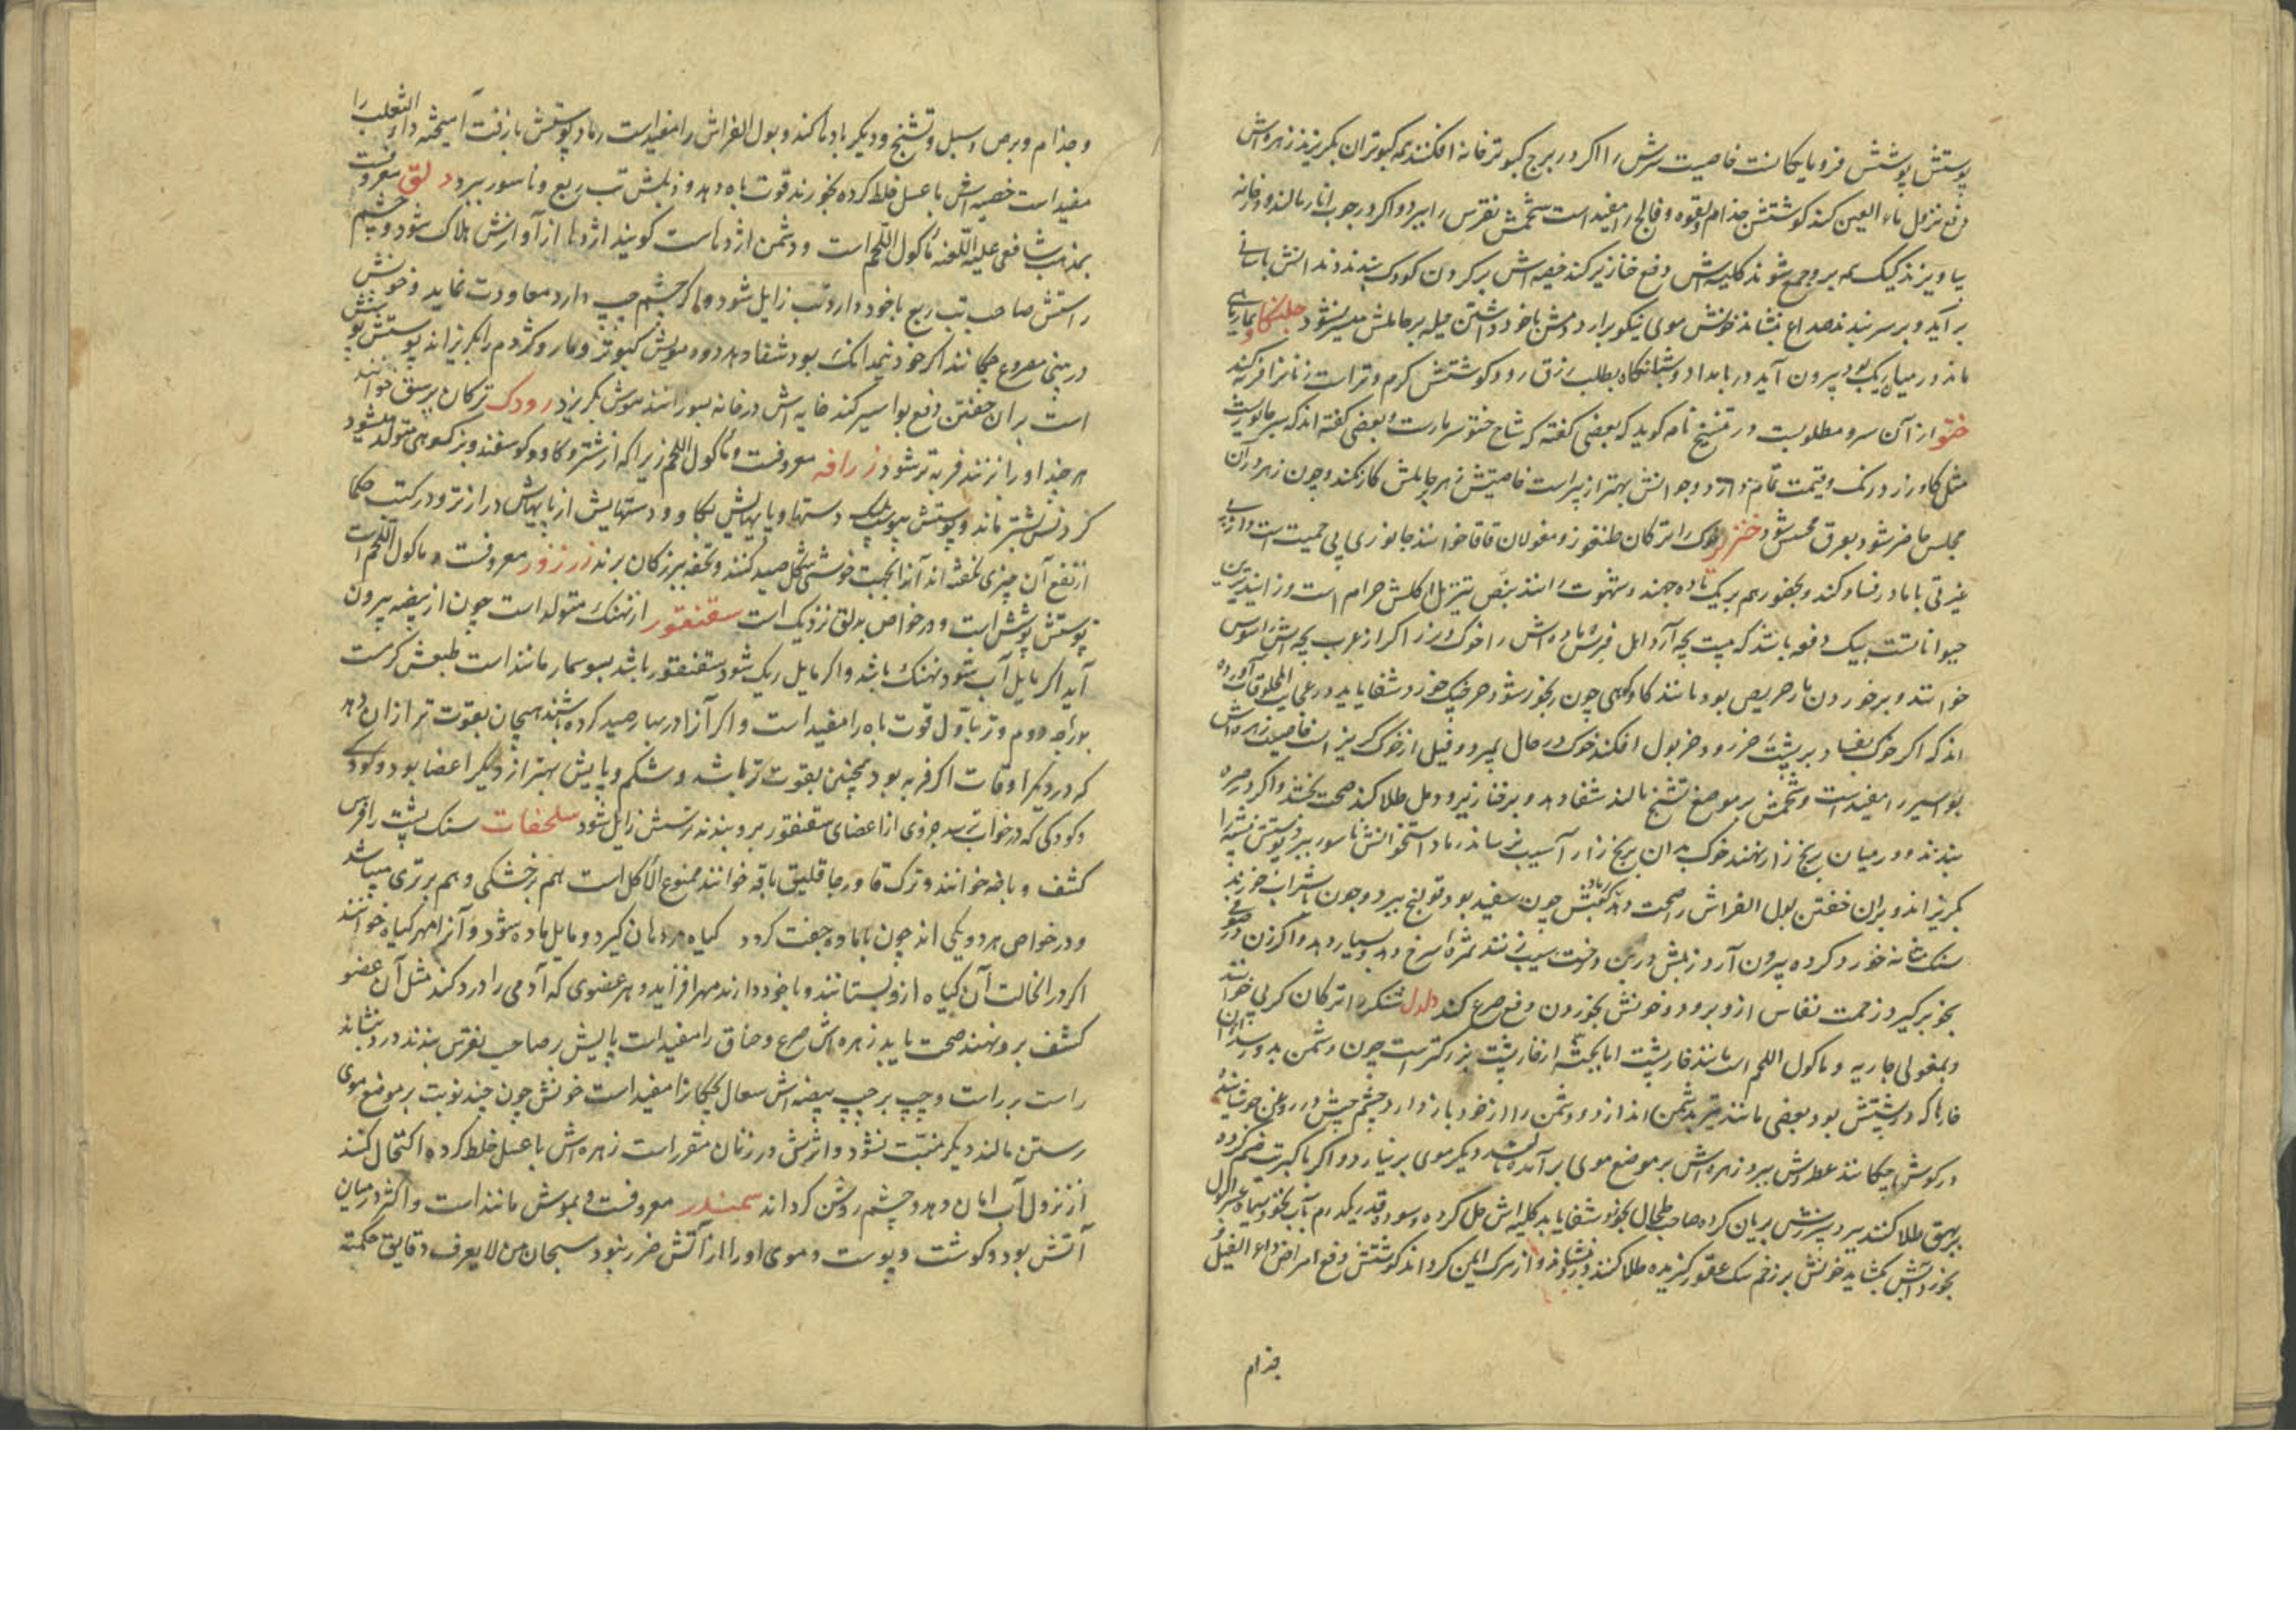 پوستش پوشش فرومایکانست خاصیت سرش را اکر در برج کبوترخانه افکنند همه کبوتران بکریزند زهره‌اش
دفع نزول ماء العین کند کوشتش جذام و لقوه و فالج را مفید است شحمش نقرس را ببرد و اکر در چوب انار مالند و در خانه
بیاویزند کیک همه برو جمع شوند کلیه‌اش دفع خنازیر کند خصیه‌اش بر کردن کودک بندند دندانش باسانی
براید و بر سر بندند صداع بنشاند خونش موی نیکو برارد دمش با خود داشتن حیله بر حاملش میسر نشود
ماند در میان ریک بود بیرون آید در بامداد و شبانکاه بطلب رزق رود کوشتش کرم و تر است زنانرا فربه کند
ختو از آن سرو مطلوبست در تنسخ نامه کوید که بعضی کفته که شاخ ختو سر مارست و بعضی کفته اند که سر جانوریست
مثل کاو زرد رنک و قیمت تمام دارد و جوانش بهتر از پیر است خاصیتش زهر بر حاملش کار نکند و چون زهر در ان
مجلس حاضر شود بعرق محسس شود خنزیر خوک را ترکان طنغوز و مغولان قاقا خوانند جانوری بی حمیت است و از بی
غیرتی با مادر فساد کند و بحضور هم بر یک ماده جهند و شهوت رانند بنص تنزیل اکلش حرام است و زاینده‌ترین
حیواناتست بیک دفعه باشد که بیست بچه آرد اهل فرس ماده‌اش را خوک و نر را کراز عرب بچه‌اش را خنوص
خوانند و بر خوردن مار حریص بود مانند کاو کوهی چون رنجور شود خرچنک خورد شفا یابد در عجایب المخلوقات آورده
اند که اکر خوک بیفتاد بر پشت خر رود خر بول افکند خوک در حال بمیرد و فیل از خوک کریزانست خاصیت زهره‌اش
بواسیر را مفید است و شحمش بر موضع تشنج مالند شفا دهد و بر خنازیر و دمل طلا کنند صحت بخشد و اکر در صره
بندند و در میان برنج زار نهند خوک بدان برنج زار آسیب نرساند رماد استخوانش ناسور ببرد پوستش پشه را
بکریزاند و بران خفتن بول الفراش را صحت دهد رماد کعبش چون سفید بود قولنج ببرد و چون با شراب خورند
سنک مثانه خورد کرده بیرون آرد زبلش در بن درخت سیب نهند ثمره سرخ دهد و بسیار دهد و اکر زن در صوفی
بخود برکیرد زحمت نفاس ازو برود و خونش بخوردن دفع صرع کند دلدل تنکره ترکان کربی خوانند
و بمغولی جاریه و ماکول اللحم است مانند خارپشت اما بجثه از خارپشت بزرکتر است چون دشمن بدو رسد ازان
خارها که در پشتش بود بعضی مانند تیر بدشمن اندازد و دشمن را از خود بازدارد چشم چپش در روغن جوشانیده
در کوش چکانند عطرش ببرد زهره‌اش بر موضع موی بر آمده مالند دیکر موی برنیارد و اکر با کبریت ضم کرده
بر بهق طلا کنند ببرد سپرزش بریان کرده صاحب طحال بخورد شفا یابد کلیه‌اش حل کرده و سوده قدر یکدرم بآب نخود سیاه عسر البول
بخورد آبش بکشاید خونش بر زخم سک عقور کزیده طلا کنند درد بنشاند و از مرک ایمن کرداند کوشتش دفع امراض داء الفیل
جذام
و جذام و برص و سبل و تشنج و دیکر بادها کند و بول الفراش را مفید است رماد پوستش با زفت آمیخته داء الثعلب را
مفید است خصیه‌اش با عسل خلط کرده بخورند قوت باه دهد و زبلش تب ربع و ناسور ببرد دلق معروفست
بمذهب شافعی علیه اللعنه ماکول اللحم است و دشمن اژدهاست کویند اژدها از آوازش هلاک شود و چشم
راستش صاحب تب ربع با خود دارد تب زایل شود و اکر چشم چپ دارد معاودت نماید و خونش
در بینی مصروع چکانند اکر خود نیمدانک بود شفا دهد دود مویش کبوتر و مار و کژدم را بکریزاند پوستش پوشش
است بران خفتن دفع بواسیر کند خایه‌اش در خانه بسوزانند موش بکریزد رودک ترکان برسق خوانند
هر چند او را بزنند فربه‌تر شود زرافه معروفست و ماکول اللحم زیرا که از شتر و کاو و کوسفند و بز کوهی متولد میشود
کردنش بشتر ماند و پوستش بپوست پلنک دستها و پایهایش بکاو و دستهایش از پایهاش درازتر و در کتب حکما
از نفع آن چیزی نکفته اند آنرا بجهت خوشی شکل صید کنند و تحفه ببزرکان برند زرزور معروفست و ماکول اللحم است
پوستش پوشش است و در خواص بدلق نزدیک است سقنقور از نهنک متولد است چون از بیضه بیرون
آید اکر مایل آب شود نهنک باشد و اکر مایل ریک شود سقنقور باشد بسوسمار مانند است طبعش کرمست
بدرجه دوم و تر باول قوت باه را مفید است و اکر آنرا در بهار صید کرده باشند هیجان بقوت‌تر ازان دهد
که در دیکر اوقات اکر فربه بود همچنین بقوت‌تر باشد و شکم و پایش بهتر از دیکر اعضا بود و کودک
و کودکی که در خواب ترسد جزوی از اعضای سقنقور برو بندند ترسش زایل شود سلحفات سنک پشت را فرس
کشف و باخه خوانند و ترک قاورجاقلیق باقه خوانند ممنوع الاکل است هم بر خشکی و هم بر تری میباشد
و در خواص هر دو یکی اند چون با ماده جفت کردد کیاه در دهان کیرد و مایل ماده شود و آنرا مهر کیاه خوانند
اکر در انحالت آن کیاه ازو بستانند و با خود دارند مهر افزاید و هر عضوی که آدمی را درد کند مثل آن عضو
کشف برو نهند صحت یابد زهره‌اش صرع و خناق را مفید است پایش بر صاحب نقرس بندند درد بنشاند
راست بر راست و چپ بر چپ بیضه‌اش سعال بچکانرا مفید است خونش چون چند نوبت بر موضع موی
رستن مالند دیکر منبت نشود و اثرش در زنان مقرر است زهره‌اش با عسل خلط کرده اکتحال کنند
از نزول آب امان دهد و چشم روشن کرداند سمندر معروفست و بموش مانند است و اکثر در میان
آتش بود و کوشت و پوست و موی او را از آتش ضرر نبود سبحان من لا یعرف دقایق حکمته